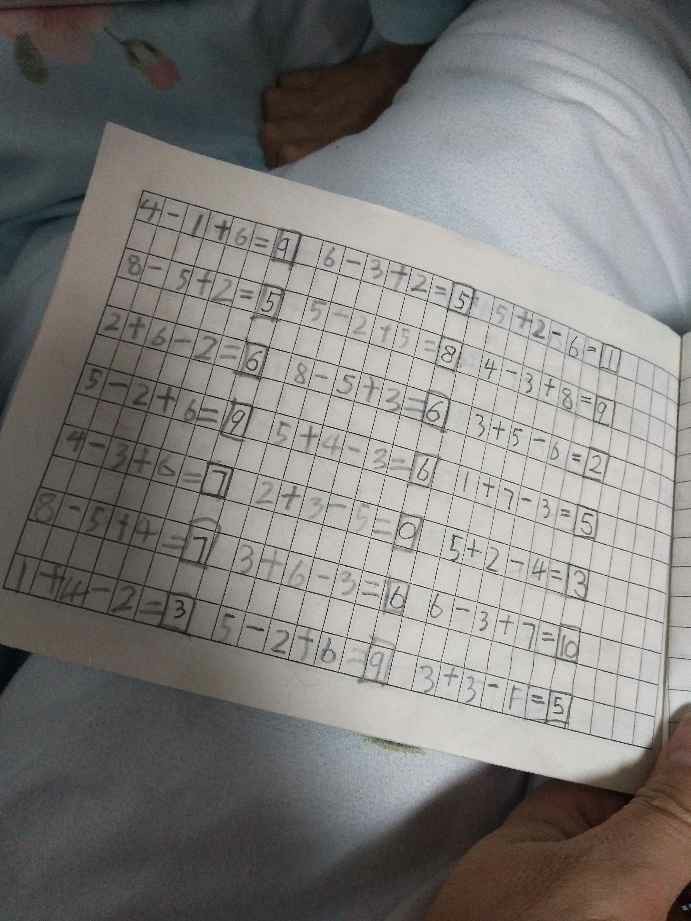 4-1+6=9 6-3+2=5 5+2-6=1
8-5+2=5 5-2+5=8 4-3+8=9
2+6-2=6 8-5+3=6 3+5-6=2
5-2+6=9 5+4-3=6 1+7-3=5
4-3+6=7 2+3-5=0 5+2-4=3
8-5+4=7 3+6-3=6 6-3+7=10
1+4-2=3 5-2+6=9 3+3-1=5